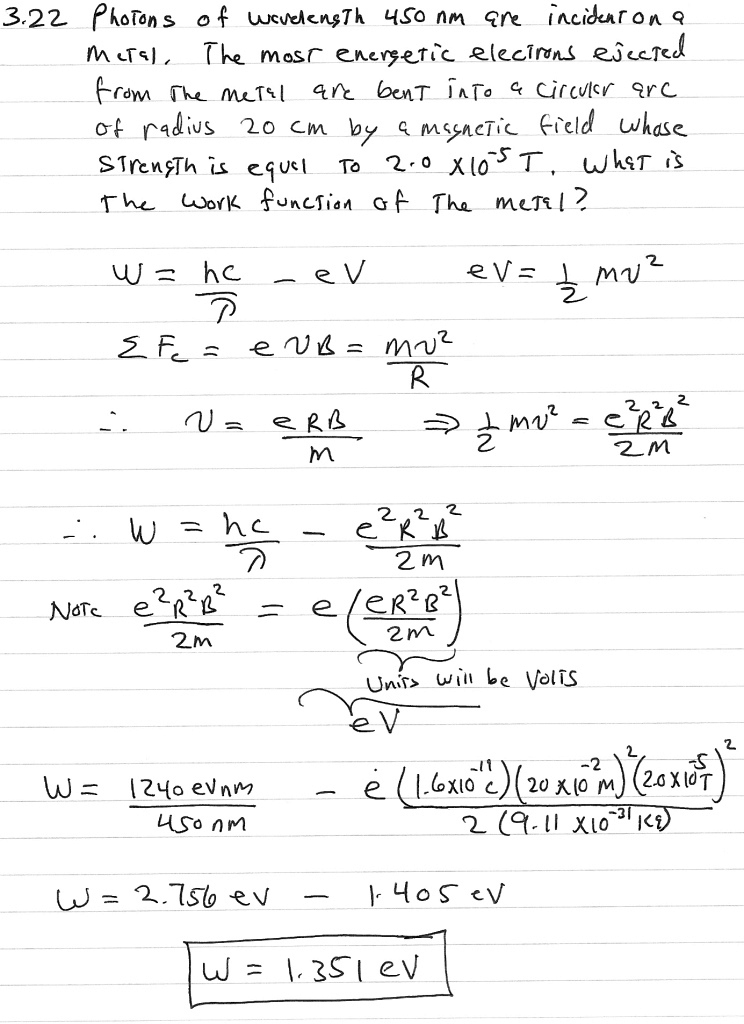 3.22 Photons of wavelength 450 nm are incident on a
metal. The most energetic electrons ejected
from the metal are bent into a circular arc
of radius 20 cm by a magnetic field whose
strength is equal to 2.0 x10⁻⁵ T. What is
the work function of the metal?
W = hc/λ - eV    eV = 1/2 mv²
Σ F_c = evB = mv²/R
∴ v = eRB/m ⇒ 1/2 mv² = e²R²B²/2m
∴ W = hc/λ - e²R²B²/2m
Note e²R²B²/2m = e(eR²B²/2m)
Units will be Volts
eV
W = 1240 evnm/450 nm - e(1.6x10⁻¹⁹c)(20x10⁻²m)²(2.0x10⁻⁵T)²/2(9.11 x10⁻³¹kg)
W = 2.756 ev - 1.405 eV
W = 1.351 eV